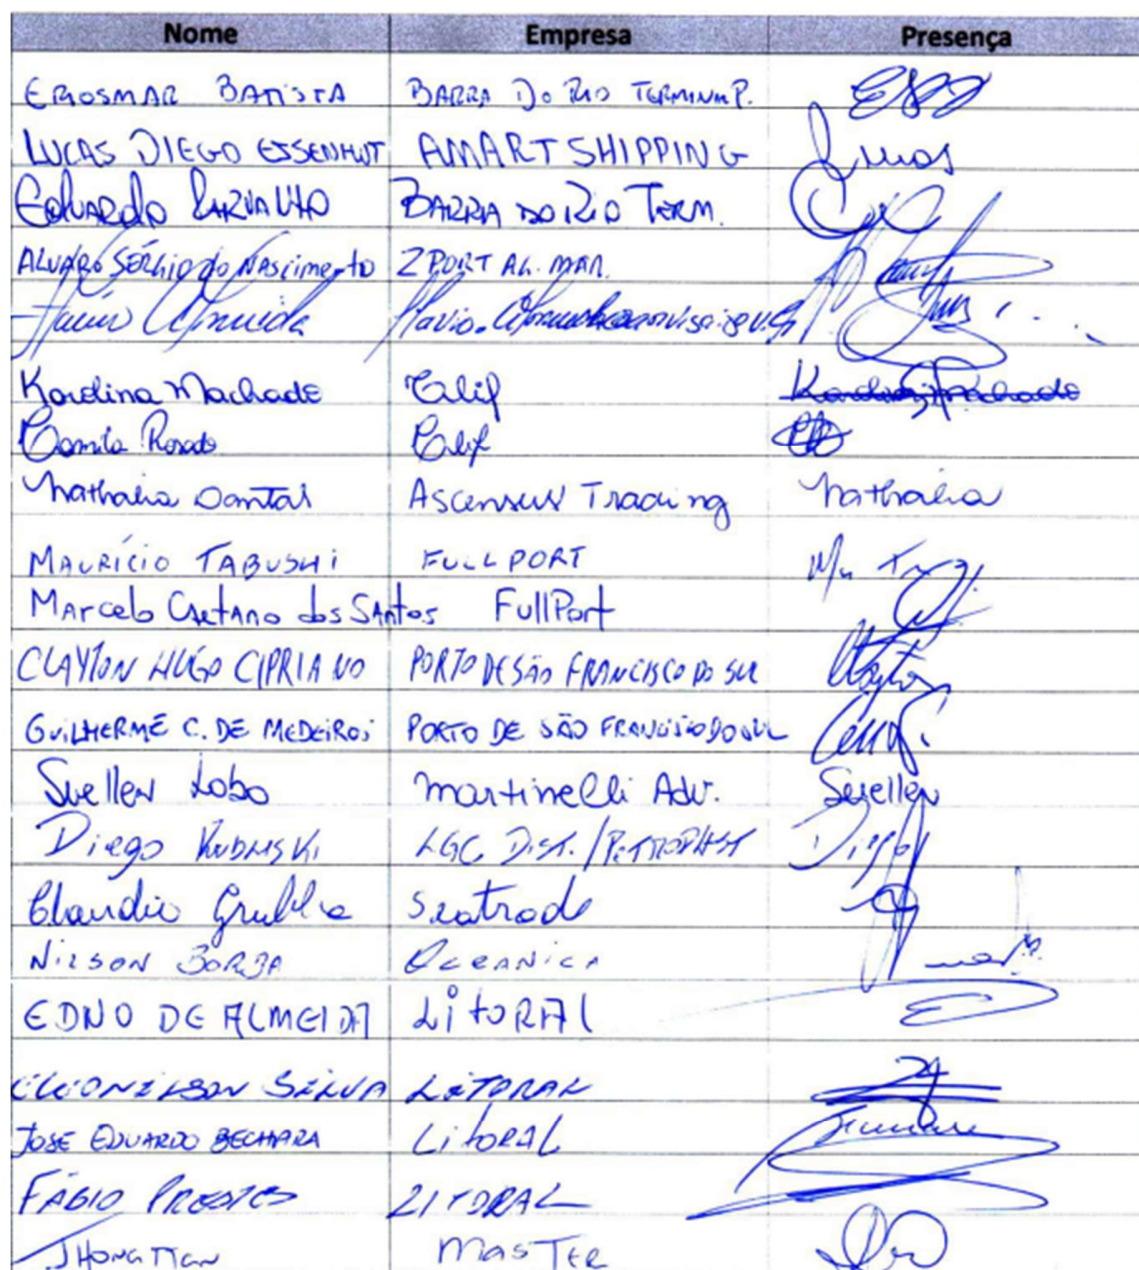 Nome Empresa Presença
EROSMAR BATISTA BARRA DO RIO TERMINAL P.
LUCAS DIEGO EISSENHUT AMART SHIPPING Lucas
Eduardo Carvalho BARRA DO RIO TERM.
ALVARO SÉRGIO do Nascimento ZPORT AG. MAR.
Flavio Almeida
Karolina Machado Clif Karolina Machado
Camila Rosado Clif
Nathalia Dantas Ascensus Trading Nathalia
MAURÍCIO TABUSHI FULLPORT
Marcelo Caetano dos Santos FullPort
CLAYTON HUGO CIPRIANO PORTO DE SÃO FRANCISCO DO SUL Clayton
GUILHERME C. DE MEDEIROS PORTO DE SÃO FRANCISCO DO SUL
Suellen Lobo Martinelli Adv. Suellen
Diego LGC DIST./PETROPLAST Diego
Claudio Seatrade
NILSON BORBA OCEANICA
EDNO DE ALMEIDA LitoRAl
CLEONILSON SILVA LITORAL
JOSE EDUARDO BECHARA LitoRAL
FÁBIO PRESTES LITORAL
JHONATTAN MASTER